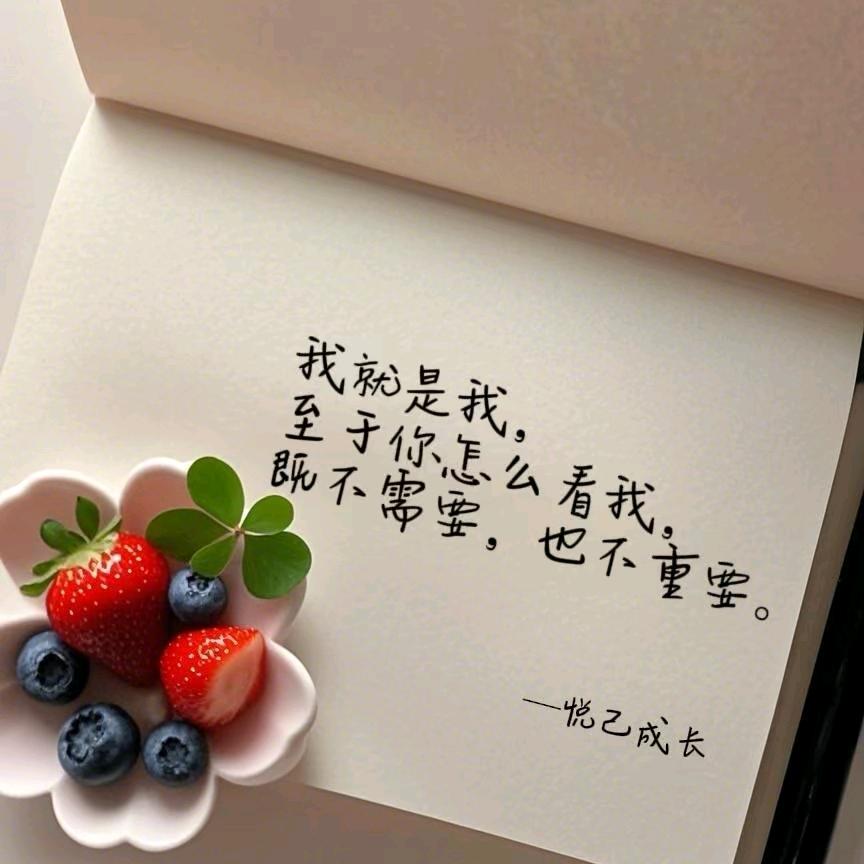 我就是我，
至于你怎么看我，
既不需要，也不重要。
—悦己成长